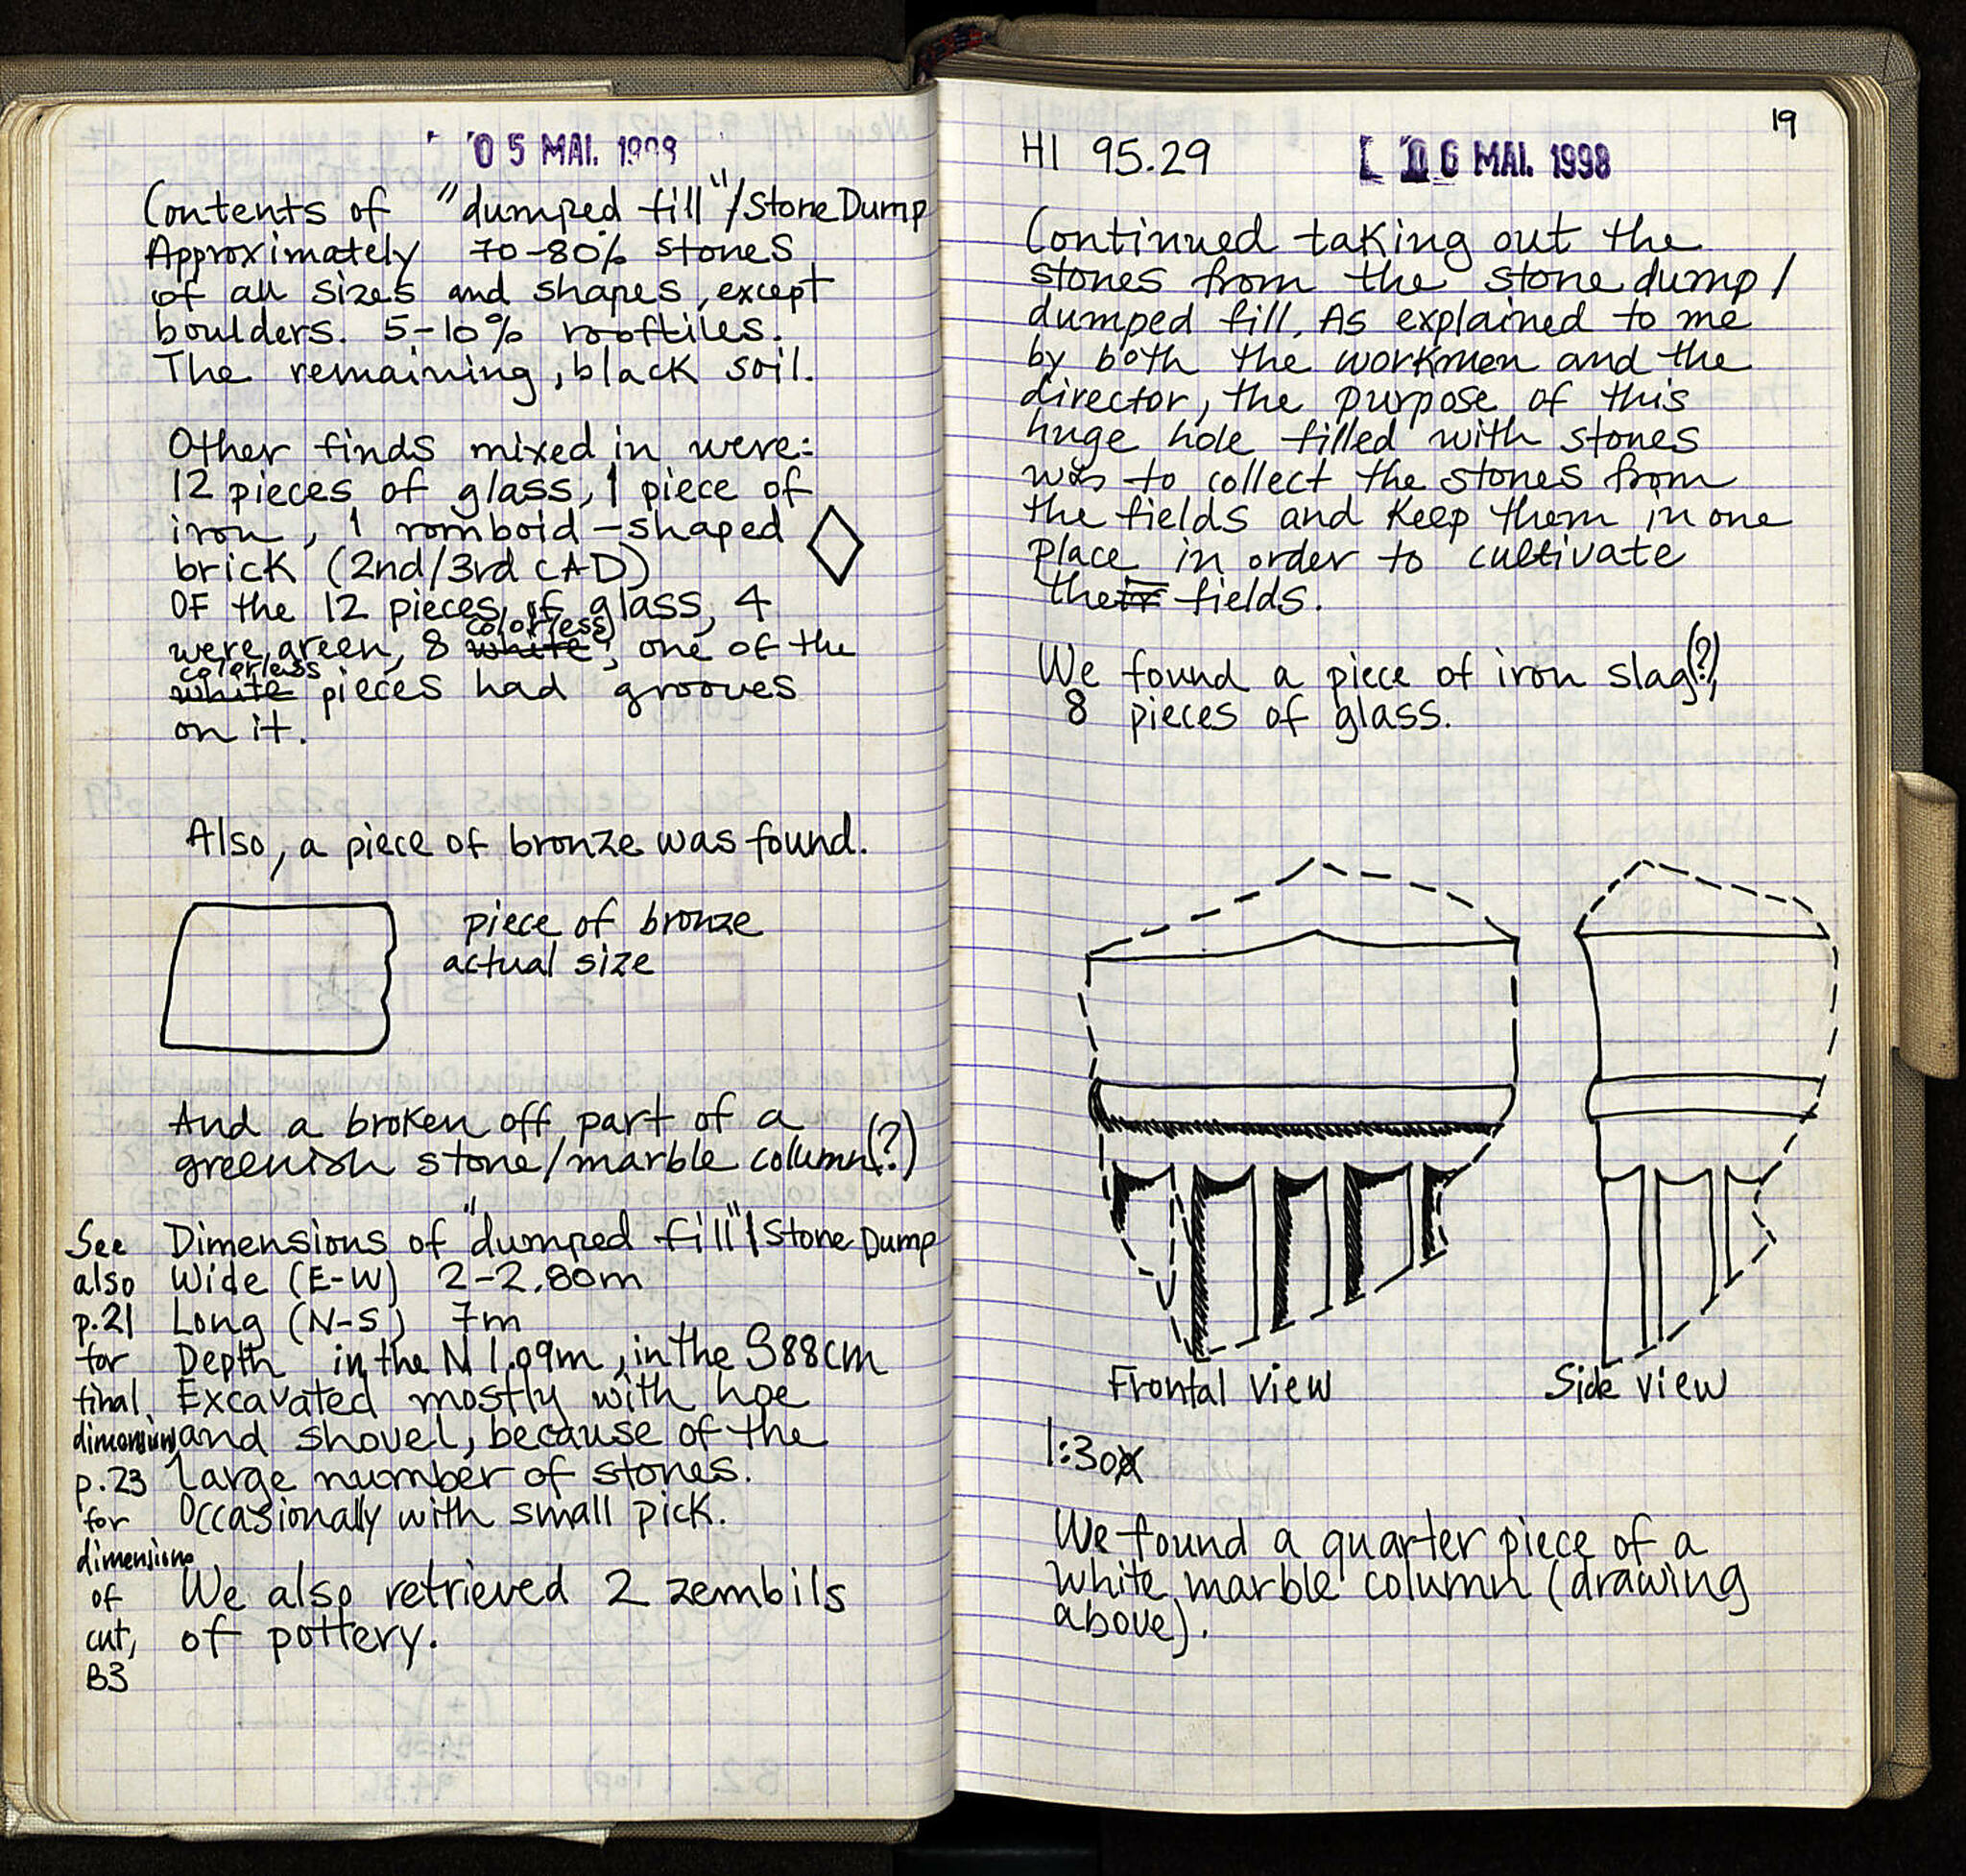 05 MAI. 1998
Contents of "dumped fill"/Stone Dump
Approximately 70-80% stones
of all sizes and shapes, except
boulders. 5-10% rooftiles.
The remaining, black soil.
Other finds mixed in were:
12 pieces of glass, 1 piece of
iron, 1 romboid-shaped
brick (2nd/3rd cAD)
OF the 12 pieces of glass, 4
colorless
were green, 8 white; one of the
colorless
white pieces had grooves
on it.
Also, a piece of bronze was found.
piece of bronze
actual size
And a broken off part of a
greenish stone/marble column(?)
Dimensions of "dumped fill"/Stone Dump
Wide (E-W) 2-2.80m
Long (N-S) 7m
Depth in the N 1.09m, in the S 88cm
Excavated mostly with hoe
and shovel, because of the
large number of stones.
Occasionally with small pick.
We also retrieved 2 zembils
of pottery.
See
also
p.21
for
final
dimensions
p.23
for
dimensions
of
cut,
B3
19
HI 95.29
06 MAI. 1998
Continued taking out the
stones from the stone dump/
dumped fill. As explained to me
by both the workmen and the
director, the purpose of this
huge hole filled with stones
was to collect the stones from
the fields and keep them in one
place in order to cultivate
their fields.
We found a piece of iron slag(?),
8 pieces of glass.
Frontal view
Side view
1:30
We found a quarter piece of a
white marble column (drawing
above).